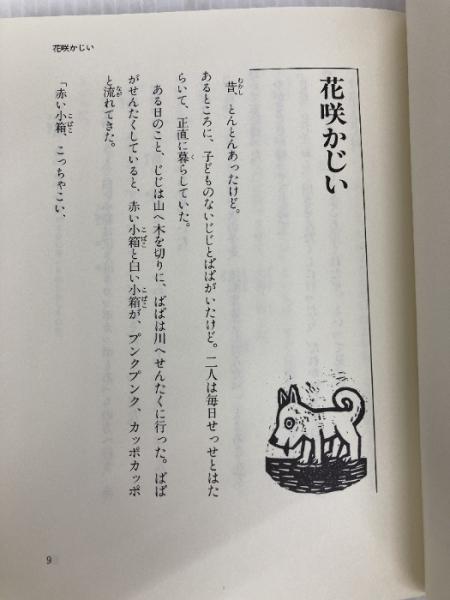 花咲かじい
花咲かじい
昔、とんとんあったけど。
あるところに、子どものないじじとばばがいたけど。二人は毎日せっせとはた
らいて、正直に暮らしていた。
ある日のこと、じじは山へ木を切りに、ばばは川へせんたくに行った。ばば
がせんたくしていると、赤い小箱と白い小箱が、プンクプンク、カッポカッポ
と流れてきた。
「赤い小箱、こっちゃこい、
9